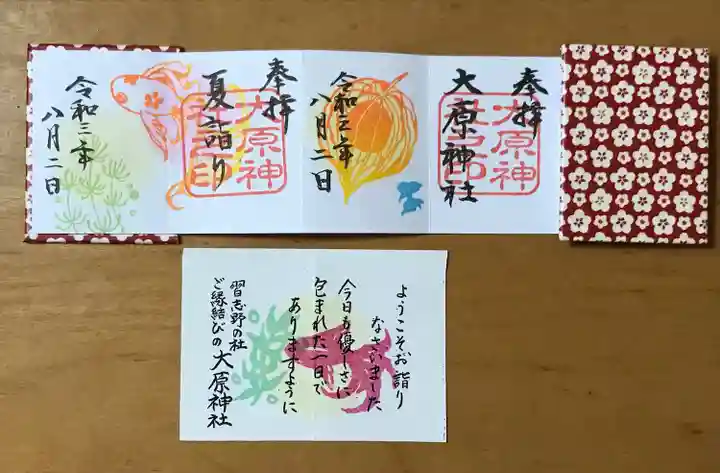 奉拝
大原神社
大原神
社之印
令和三年
八月二日
奉拝
夏詣り
大原神
社之印
令和三年
八月二日
ようこそお詣り
なさいました
今日も優しさに
包まれた一日で
ありますように
習志野の社
ご縁結びの
大原神社